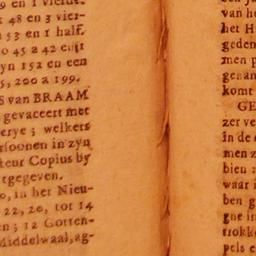 9 en 1 vierde
48 en 3 vier-
53 en 1 half.
o 45 a 42 en
yn 152 en een
5, 200 a 199.
S van BRAAM
gevaceert met
erye; welkers
rsoonen in zyn
teur Copius by
tgegeven.
o, in het Nieu-
22, 20, tot 14
en; 12 Gotten-
Middelwaal, ag-
van he
het H
geden
men p
genan
komt
GE
zer ve
in de
men z
bien
waar i
ben g
gne in
trokk
pels e